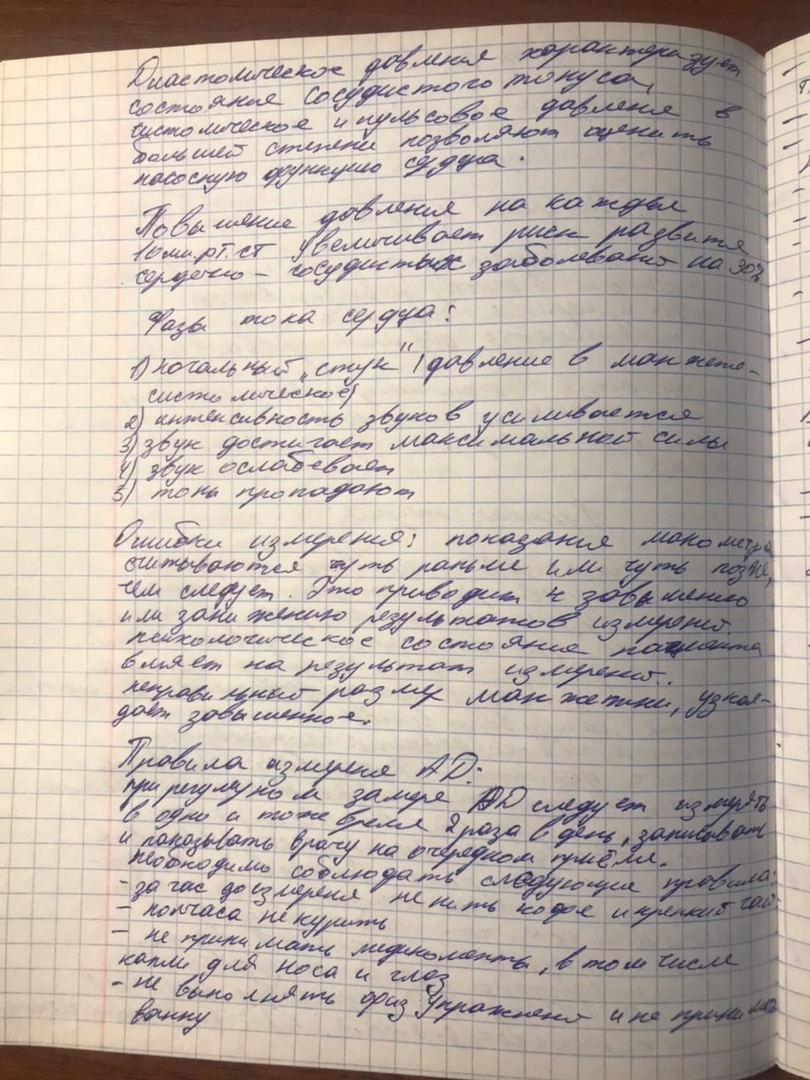 Диастолическое давления характеризует
состояние сосудистого тонуса,
систолическое и пульсовое давления в
большей степени позволяют оценить
насосную функцию сердца.
Повышение давления на каждые
10мм.рт.ст увеличивает риск развития
сердечно - сосудистых заболеваний на 30%
Фазы тока сердца:
1) начальный "стук" (давление в манжете -
систолическое)
2) интенсивность звуков усиливается
3) звук достигает максимальной силы
4) звук ослабевает
5) тоны пропадают
Ошибки измерения: показания манометра
считываются чуть раньше или чуть позже,
чем следует. Это приводит к завышению
или занижению результатов измерений.
психологическое состояние пациента
влияет на результат измерений.
неправильный размер манжетки, узкая -
дает завышенное.
Правила измереня АД:
при регулярном замере АД следует измерять
в одно и тоже время 2 раза в день, записывать
и показывать врачу на очередном приёме.
необходимо соблюдать следующие правила:
- за час до измереня не пить кофе и крепкий чай
- полчаса не курить
- не принимать медикаменты, в том числе
капли для носа и глаз
- не выполнять физ упражнений и не принимать
ванну